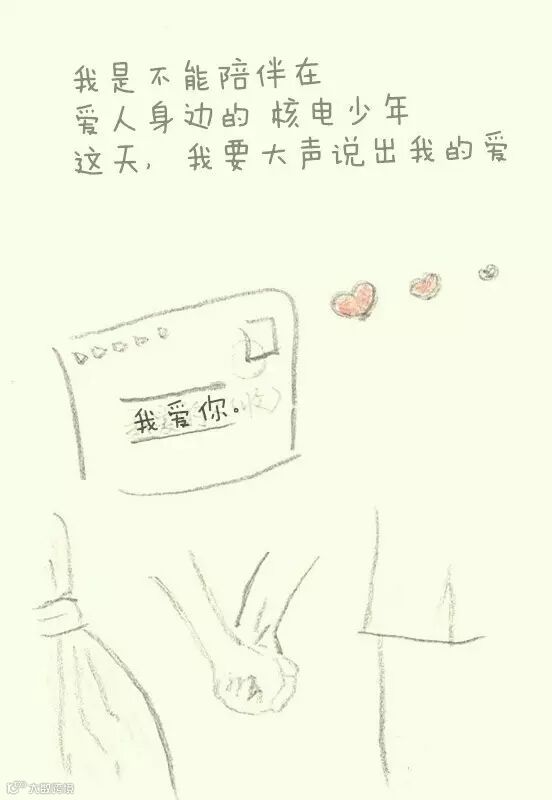 我是不能陪伴在
爱人身边的 核电少年
这天, 我要大声说出我的爱
我爱你。